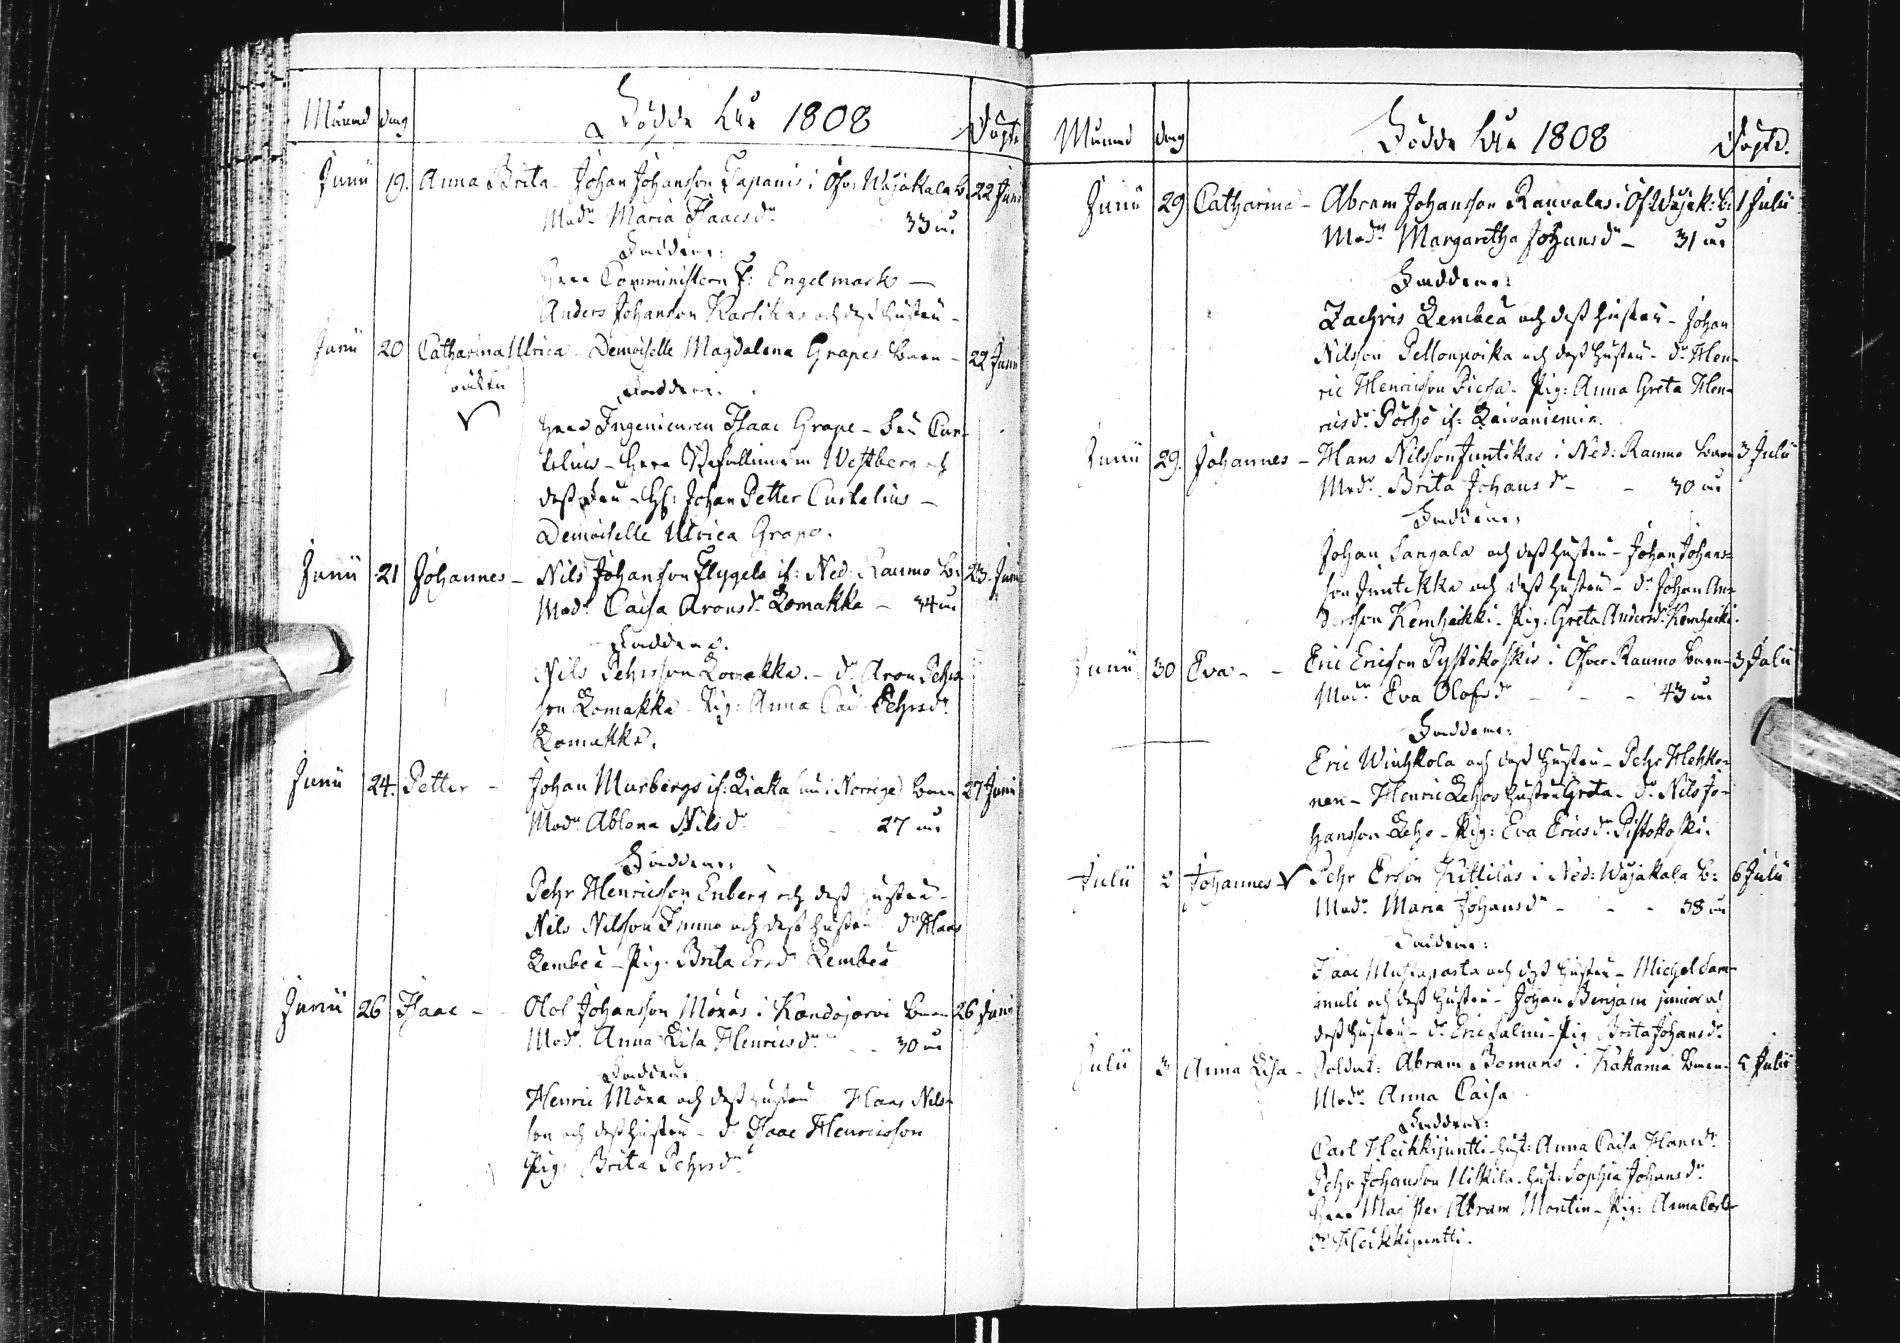 Månad dag Födde År 1808 Döpte
Junii 19. Anna Brita - Johan Johansson Tapanis i Öfv: Wojakala B. 22 Junii
Modr. Maria Isaacsdr 33 år
Faddrar:
Herr Comministern F: Engelmark -
Anders Johanson Karsikko och dess hustru -
Junii 20 Catharina Ulrica - Demoiselle Magdalena Grapes barn - 22 Junii
oäkta Faddrar.
Herr Ingenieuren Isaac Grape - Fru Cur-
telius - Herr Westberg och
dess Fru - H: Johan Petter Curtelius -
Demoiselle Ulrica Grape.
Junii 21 Johannes - Nils Johansson Flygels if: Ned: Raumo B: 23. Junii
Modr. Caisa Aronsdr Lomakka - 34 år
Faddrar.
Nils Pehrsson Lomakka. - dr. Aron Pehrs-
son Lomakka - Pig: Anna Cais: Pehrsdr.
Lomakka.
Junii 24. Petter - Johan Murbergs if: Liaka (nu i Norrige) barn 27 Junii
Modr. Ablona Nilsdr. 27 år
Faddrar:
Pehr Henricsson Enberg och dess hustru -
Nils Nilsson och dess hustru - dr. Hans
Lembeä - Pig: Brita Ersdr Lembeä
Junii 26 Isaac - Olof Johansson Möxäs i Kardojärvi barn 26 Junii
Modr. Anna Lisa Henricsdr. - 30 år
Faddrar
Henric Möxa och dess hustru Hans Nils-
son och dess hustru - dr. Isaac Henricsson
Pig: Brita Pehrsdr.
Månad dag Födde År 1808 Döpte.
Junii 29 Catharina - Abram Johansson Rauvalas i Öf: Wojak: B: 1 Julii
Modr. Margaretha Johansdr - 31 år
Faddrar:
Zachris Lembeä och dess hustru - Johan
Nilsson Pellonpoika och dess hustru - dr. Hen-
ric Henricsson Piessa - Pig: Anna Greta Hen-
ricsdr. Pörhö if: Laivaniemie.
Junii 29. Johannes - Hans Nilsson Juntikas i Ned: Raumo barn 3 Julii
Modr. Brita Johansdr - - 30 år
Faddrar:
Johan Sangala och dess hustru - Johan Johans-
son Juntikka och dess hustru - dr. Johan An-
dersson Kemheikki - Pig: Greta Andersdr. Kemheikki.
Junii 30 Eva - - Eric Ericson Pystökoskis i Öfver Raumo barn - 3 Julii
Modr. Eva Olofsdr - - - 43 år
Faddrar:
Eric Winhkola och dess hustru - Pehr Hehko-
nen - Henric Lehos hustru Greta - dr. Nils Jo-
hansson Leho - Pig: Eva Ericsdr. Pistökoski.
Julii 2 Johannes Pehr Ersson Kittiläs i Ned: Wojakala B: 6 Julii
Modr. Maria Johansdr - - - 38 år
Faddrar:
Isaac Mustaparta och dess hustru - Michel Sam-
muli och dess hustru - Johan Benjam junior och
dess hustru - dr. Eric Salmi - Pig Brita Johansdr.
Julii 3 Anna Lisa - Soldat: Abram Bomans i Kakama barn - 5 Julii
Modr. Anna Caisa
Faddrar:
Carl Heikkijuntti - hust: Anna Caisa Hansdr.
Pehr Johanson Niskila - hust: Sophia Johansdr.
Herr Magister Abram Montin - Pig: Anna Carls-
dr. Heikkijuntti.